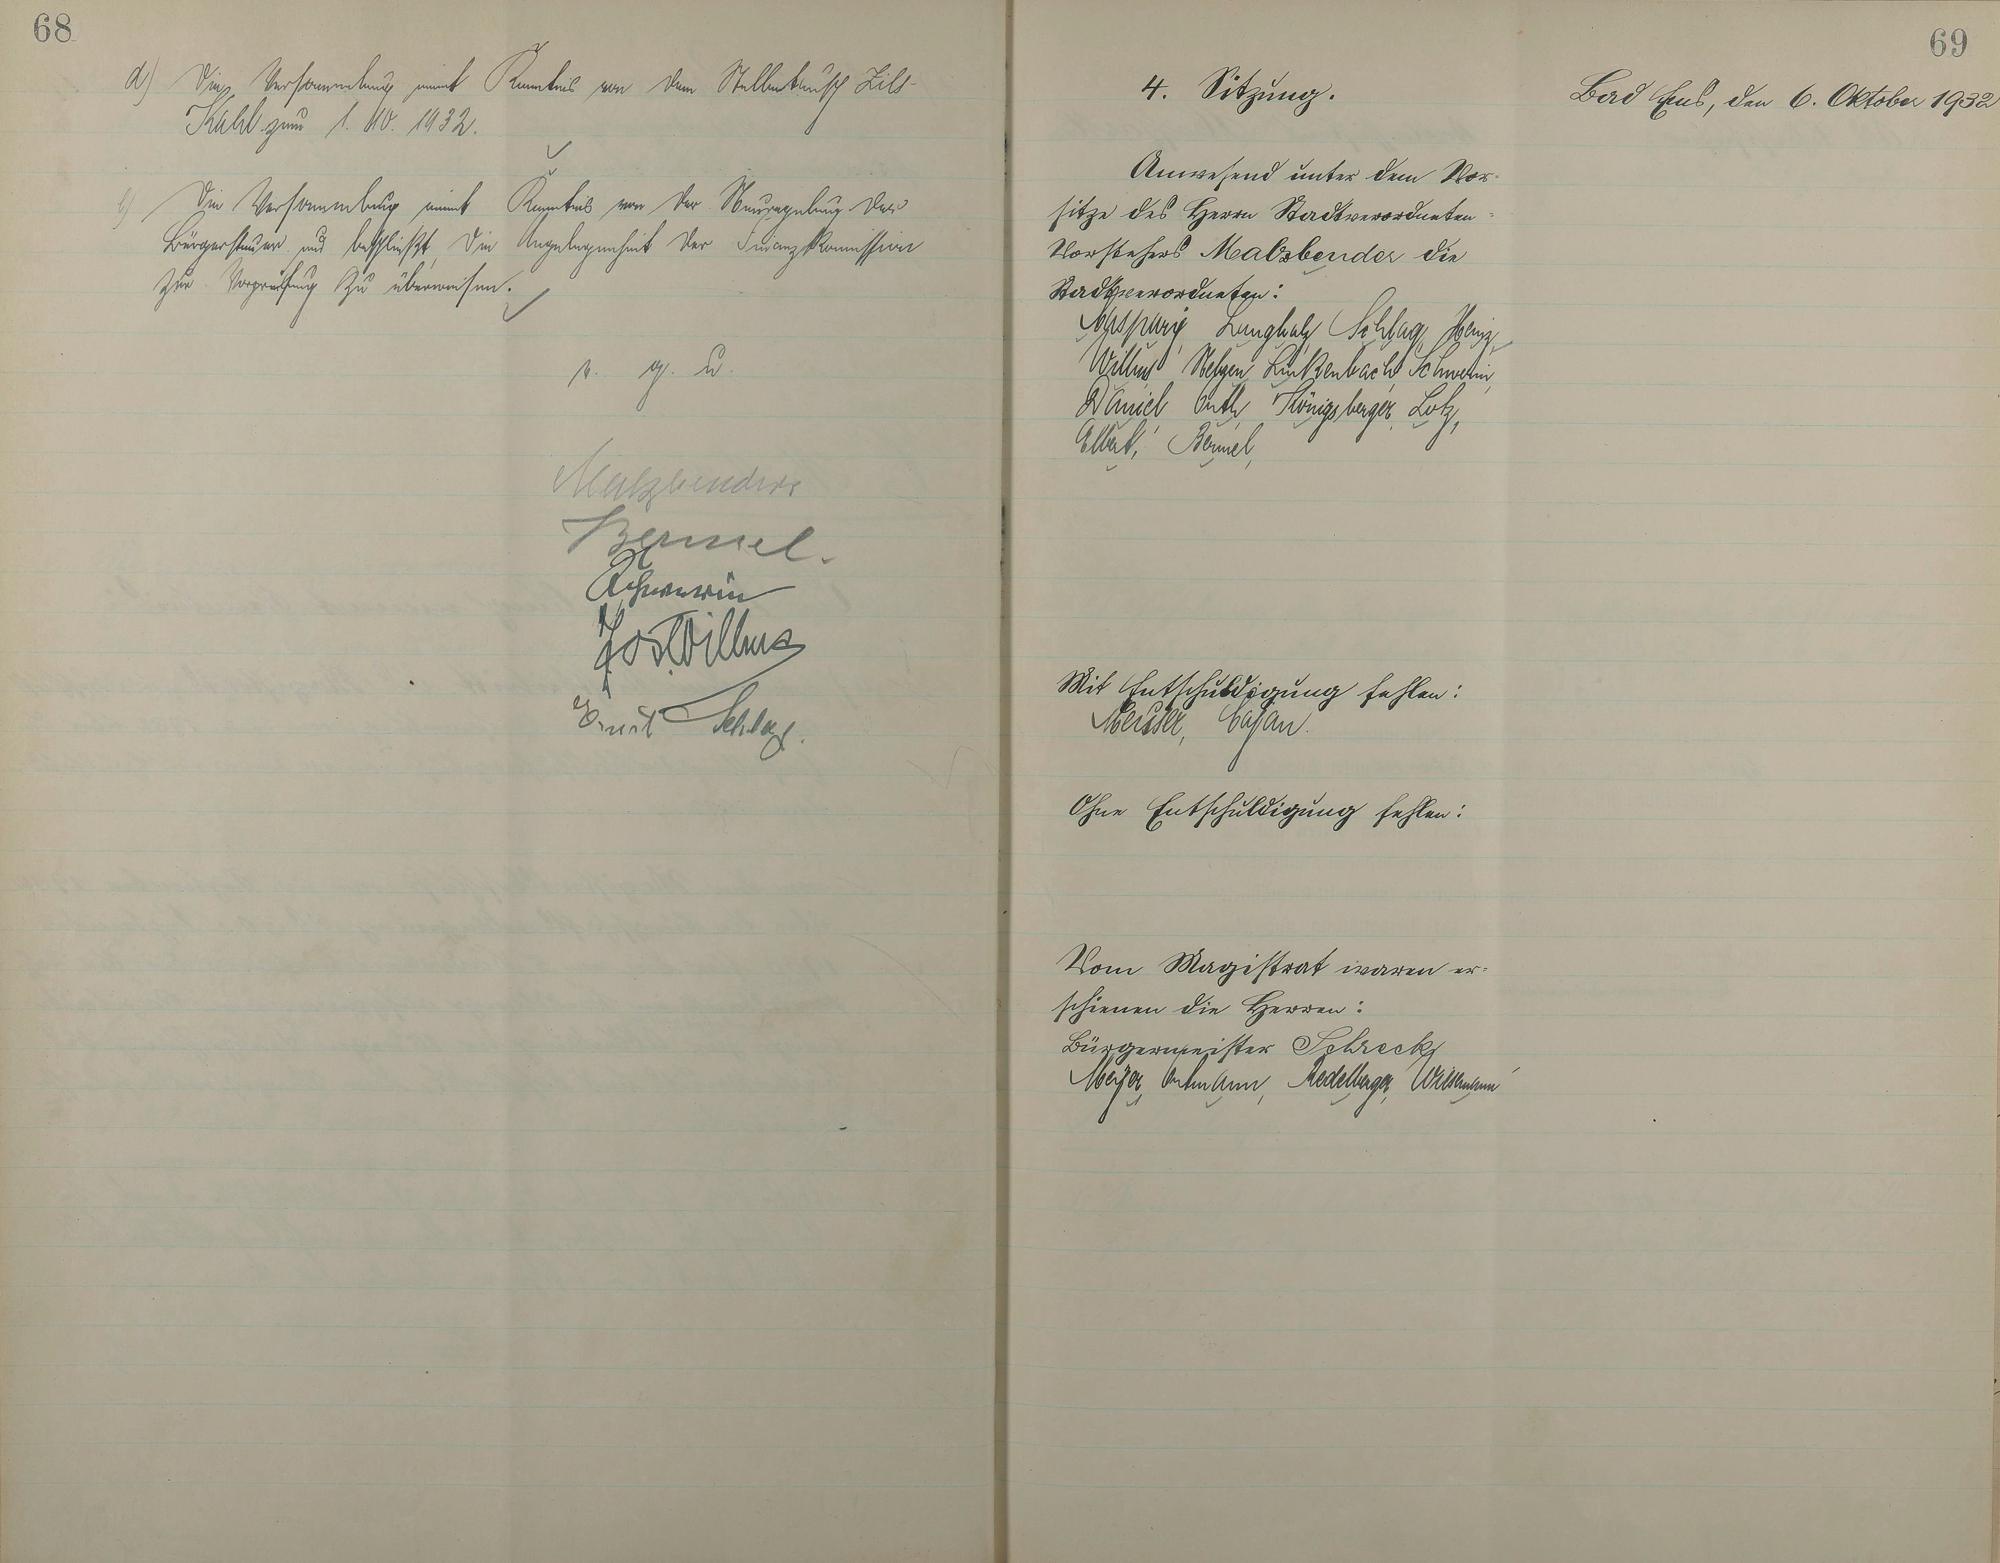 68
d) Die Versammlung nimmt Kenntnis von dem Stellentausch Zils-
Kahl zum 1. 10. 1932.
e) Die Versammlung nimmt Kenntnis von der Neuregelung der
Bürgersteuer und beschließt, die Angelegenheit der Finanzkommission
zur Vorprüfung zu überweisen.
v. g. u.
Malzbender
Bermel.
Schwerin
Jos Willms
Ernst Schlag.
69
4. Sitzung.
Bad Ems, den 6. Oktober 1932
Anwesend unter dem Vor-
sitze des Herrn Stadtverordneten-
Vorstehers Malzbender die
Stadtverordneten:
Kaspary, Langholz, Schlag, Heinz,
Willms, Linkenbach, Schwerin,
Daniel, Königsberger, Lotz,
Elbert, Bermel,
Mit Entschuldigung fehlen:
Meister,
Ohne Entschuldigung fehlen:
Vom Magistrat waren er-
schienen die Herren:
Bürgermeister Schreck,
Meyer, Ortmann,